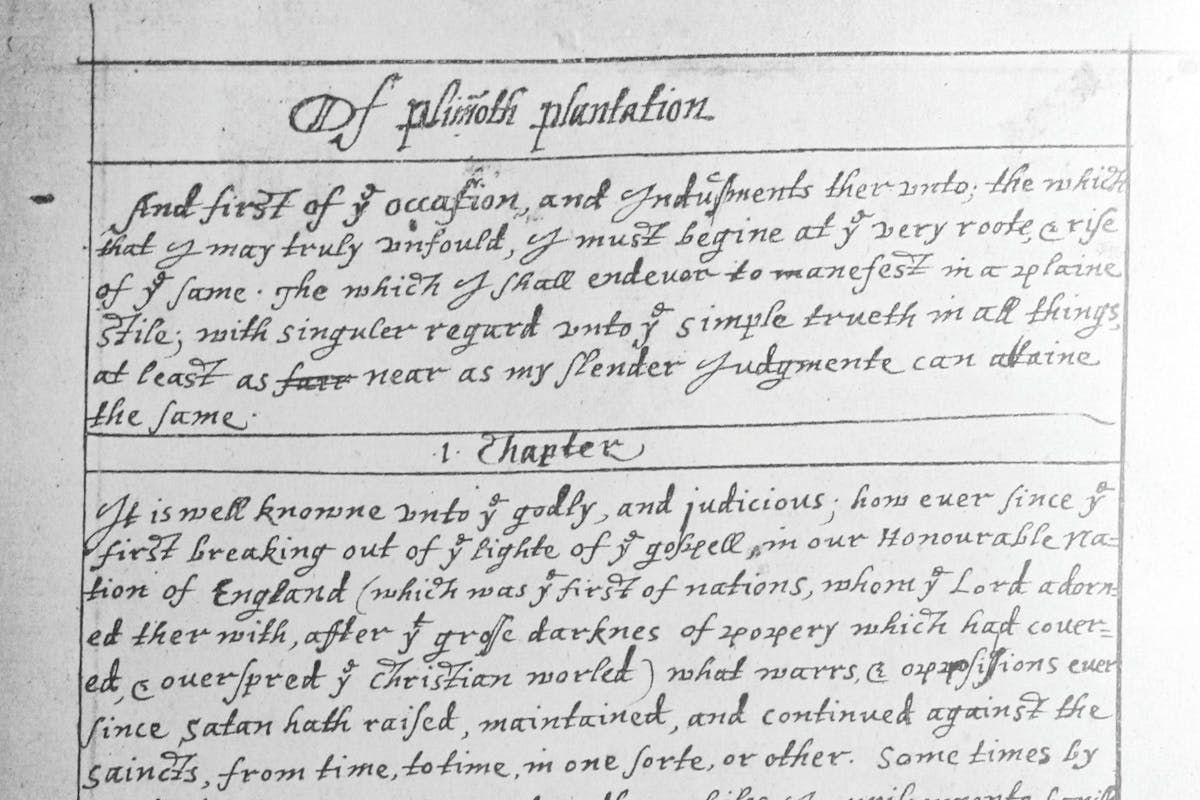 Of plim̃oth plantation
And first of yᵉ occasion, and Indusments ther vnto; the which
that I may truly vnfould, I must begine at yᵉ very roote, & rise
of yᵉ same. The which I shall endevor to manefest in a plaine
stile; with singuler regard vnto yᵉ simple trueth in all things,
at least as ~~farr~~ near as my slender Judgmente can attaine
the same.
.1. Chapter
It is well knowne vnto yᵉ godly, and judicious; how euer since yᵉ
first breaking out of yᵉ lighte of yᵉ gospell, in our Honourable Na=
tion of England (which was yᵉ first of nations, whom yᵉ Lord adorn=
ed ther with, after yᵗ grosse darknes of popery which had couer=
ed, & ouerspred yᵉ Christian worled) what warrs, & oppossissions euer
since Satan hath raised, maintained, and continued against the
saincts, from time, to time, in one sorte, or other. Some times by